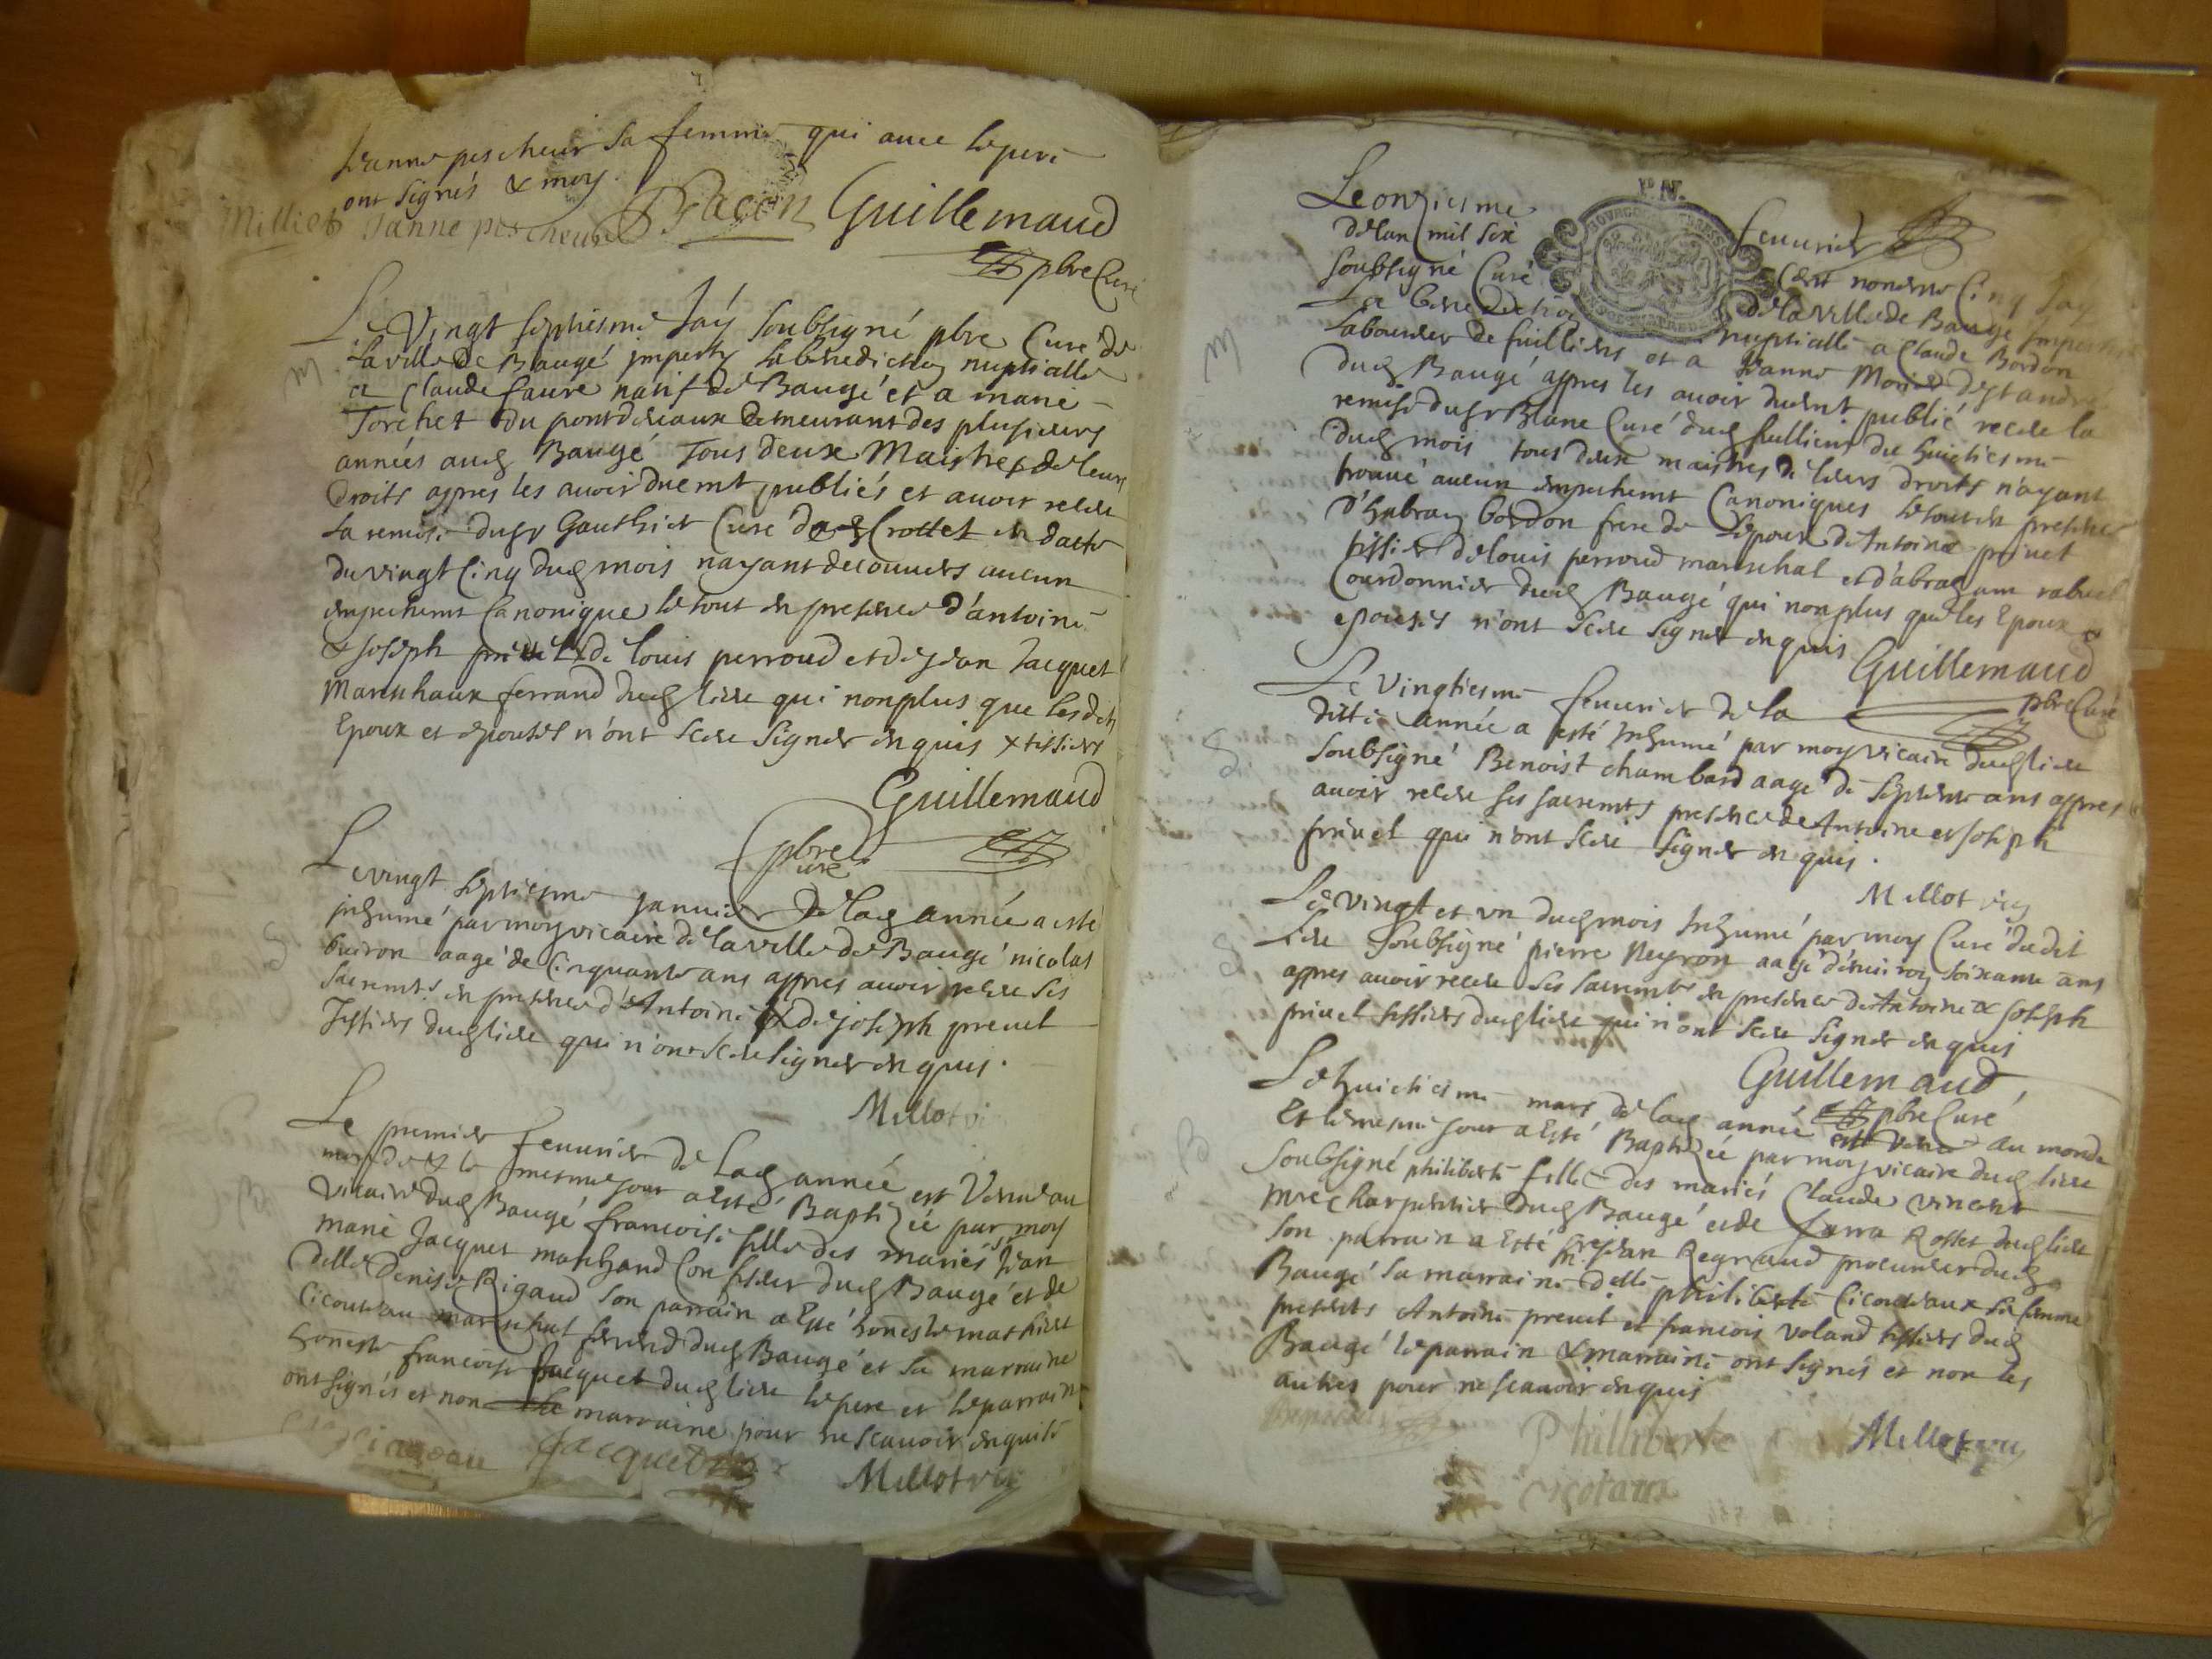 Jeanne pescheur sa femme qui avec le pere
ont signés & moy.
Milliet Janne pescheur Bracon Guillemaud
pbre Curé
M
Le Vingt septiesme Jay soubsigné pbre Curé de
la ville de Baugé imparty la benediction nuptialle
a Claude faure natif de Baugé et a marie
Torchet du pontdevaux demeurant des plusieurs
années aud Baugé Tous deux Maistres de leurs
Droits apres les avoir duemt publiés et avoir receu
la remise du sr Gauthier Curé de Crottet en datte
du vingt Cinq dud mois nayant decouvers aucun
empechemt Canonique le tout en presence d'antoine
& Joseph privet de Louis perroud et de Jean Jacquet
Mareschaux ferrand dud lieu qui nonplus que lesdits
Epoux et epouses n'ont sceu signer enquis x tissiers
Guillemaud
pbre Curé
Le vingt septiesme janvier de lad année a esté
inhumé par moy vicaire de la ville de Baugé nicolas
buiron aagé de Cinquante ans apres avoir receu ses
sacremts en presence d'Antoine & de joseph prevet
Tissiers dud lieu qui n'ont sceu signer enquis.
Millot vi
Le premier fevvrier de lad année est Venue au
monde & le mesme jour a Esté Baptizée par moy
Vicaire dud Baugé francoise fille des mariés sr Jean
marie Jacquet marchand Confiseur dud Baugé et de
delle Denise Rigaud son parrain a Esté honeste mathieu
Cicouteau mareschal ferrend dud Baugé et sa marraine
honeste francoise Jacquet dud lieu le pere et le parrain
ont signés et non la marraine pour ne scavoir enquise
Jacquet Millot vic
P.N.
Le onziesme fevvrier
de lan mil six Cent nonente Cinq Jay
soubsigné Curé de la ville de Baugé Imparti
La benediction nuptialle a Claude Bordon
M
laboureur de fuilliens et a Jeanne Morier de st andré
dud Baugé apres les avoir duemt publié receu la
remise du sr Blanc Curé dud fuilliens du huictiesme
dud mois tous deux maistres de leurs droits n'ayant
trouvé aucun empechemt Canoniques le tout en presence
D'habray bordon frere de Lepoux de Antoine privet
tissier de Louis perroud mareschal et d'abraham rabuel
Courdonnier dud Baugé qui nonplus que les Epoux &
epouses n'ont sceu signer enquis
Guillemaud
pbre Curé
Le Vingtiesme fevvrier de la
ditte année a esté Inhumé par moy vicaire dud lieu
soubsigné Benoist chambard aagé de septente ans apres
avoir receu ses sacremts presence de Antoine et Joseph
privet qui n'ont sceu signer enquis.
Millot vic
Le vingt et un dud mois Inhumé par moy Curé dudit
Lieu soubsigné pierre Neyron aagé d'environ soixante ans
apres avoir receu ses sacremts en presence de Antoine & Joseph
privet tissiers dud lieu qui n'ont sceu signer enquis
Guillemaud
pbre Curé
Le huictiesme mars de lad année est Venue au monde
Et le mesme jour a Esté Baptizée par moy vicaire dud lieu
B
soubsigné philiberte fille des mariés Claude vincent
mre Charpentier dud Baugé et de Rosset dud lieu
son parrain a Esté sr Jean Regnaud procureur dud
Baugé sa marraine delle philiberte Cicouteaux sa femme
presents Antoine prevet et francois voland tissiers dud
Baugé le parrain & marraine ont signés et non les
autres pour ne scavoir enquis
Philliberte Millot vic
cicotaux